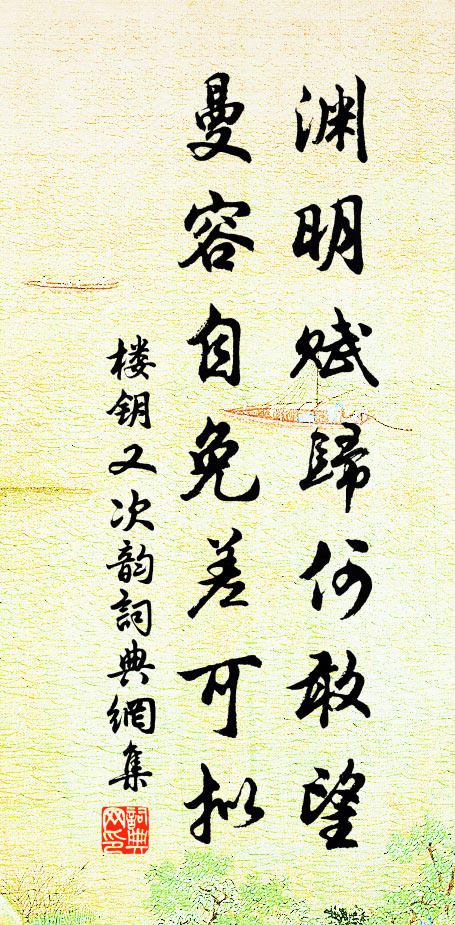 渊明赋歸何敢望
曼容自免差可拟
楼钥又次韵詞典網集
詞典網印